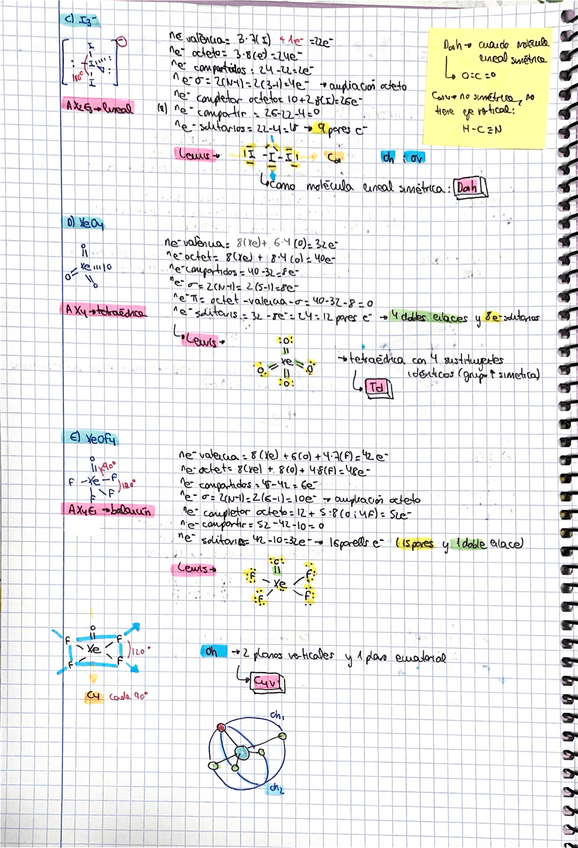 C) I3⁻
nº e⁻ valència = 3·7(I) +1e⁻ = 22e⁻
nº e⁻ octeto = 3·8(e) = 24e⁻
nº e⁻ compartidos = 24-22 = 2e⁻
nº e⁻ σ = 2(N-1) = 2(3-1) = 4e⁻ → ampliación octeto
nº e⁻ completar octetos 10+2·8(I) = 26e⁻
nº e⁻ compartir = 26-22-4 = 0
nº e⁻ solitarios = 22-4 = 18 → 9 pares e⁻
I
I
I
180°
AX2E3 → lineal
D∞h → cuando molécula lineal simétrica
↳ O=C=O
C∞v → no simétrica, no tiene eje vertical:
H-C≡N
Lewis →
I - I - I
C∞
σh
σv
↳ Como molécula lineal simétrica: D∞h
D) XeO4
nº e⁻ valència = 8(Xe) + 6·4(O) = 32e⁻
nº e⁻ octet = 8(Xe) + 8·4(O) = 40e⁻
nº e⁻ compartidos = 40-32 = 8e⁻
nº e⁻ σ = 2(N-1) = 2(5-1) = 8e⁻
nº e⁻ π = octet - valencia - σ = 40-32-8 = 0
nº e⁻ solitaris = 32-8e⁻ = 24 = 12 pares e⁻ → 4 dobles enlaces y 8e⁻ solitarios
O
Xe
O
O
O
AX4 → tetraédrica
Lewis →
O
O = Xe = O
O
→ tetraédrica con 4 sustituyentes idénticos (grupo ↑ simetrica)
Td
E) XeOF4
nº e⁻ valencia = 8(Xe) + 6(O) + 4·7(F) = 42e⁻
nº e⁻ octet = 8(Xe) + 8(O) + 4·8(F) = 48e⁻
nº e⁻ compartidos = 48-42 = 6e⁻
nº e⁻ σ = 2(N-1) = 2(6-1) = 10e⁻ → ampliación octeto
nº e⁻ completar octeto = 12 + 5·8(O i 4F) = 52e⁻
nº e⁻ compartir = 52-42-10 = 0
nº e⁻ solitarios = 42-10 = 32e⁻ → 16 parells e⁻ (15 pares y 1 doble enlace)
O
90°
F - Xe - F
120°
F
F
Lewis →
O
F
F
Xe
F
F
O
F
F
Xe
120°
F
F
C4 cada 90°
σh → 2 planos verticales y 1 plano ecuatorial
↳ C4v
σh1
σh2